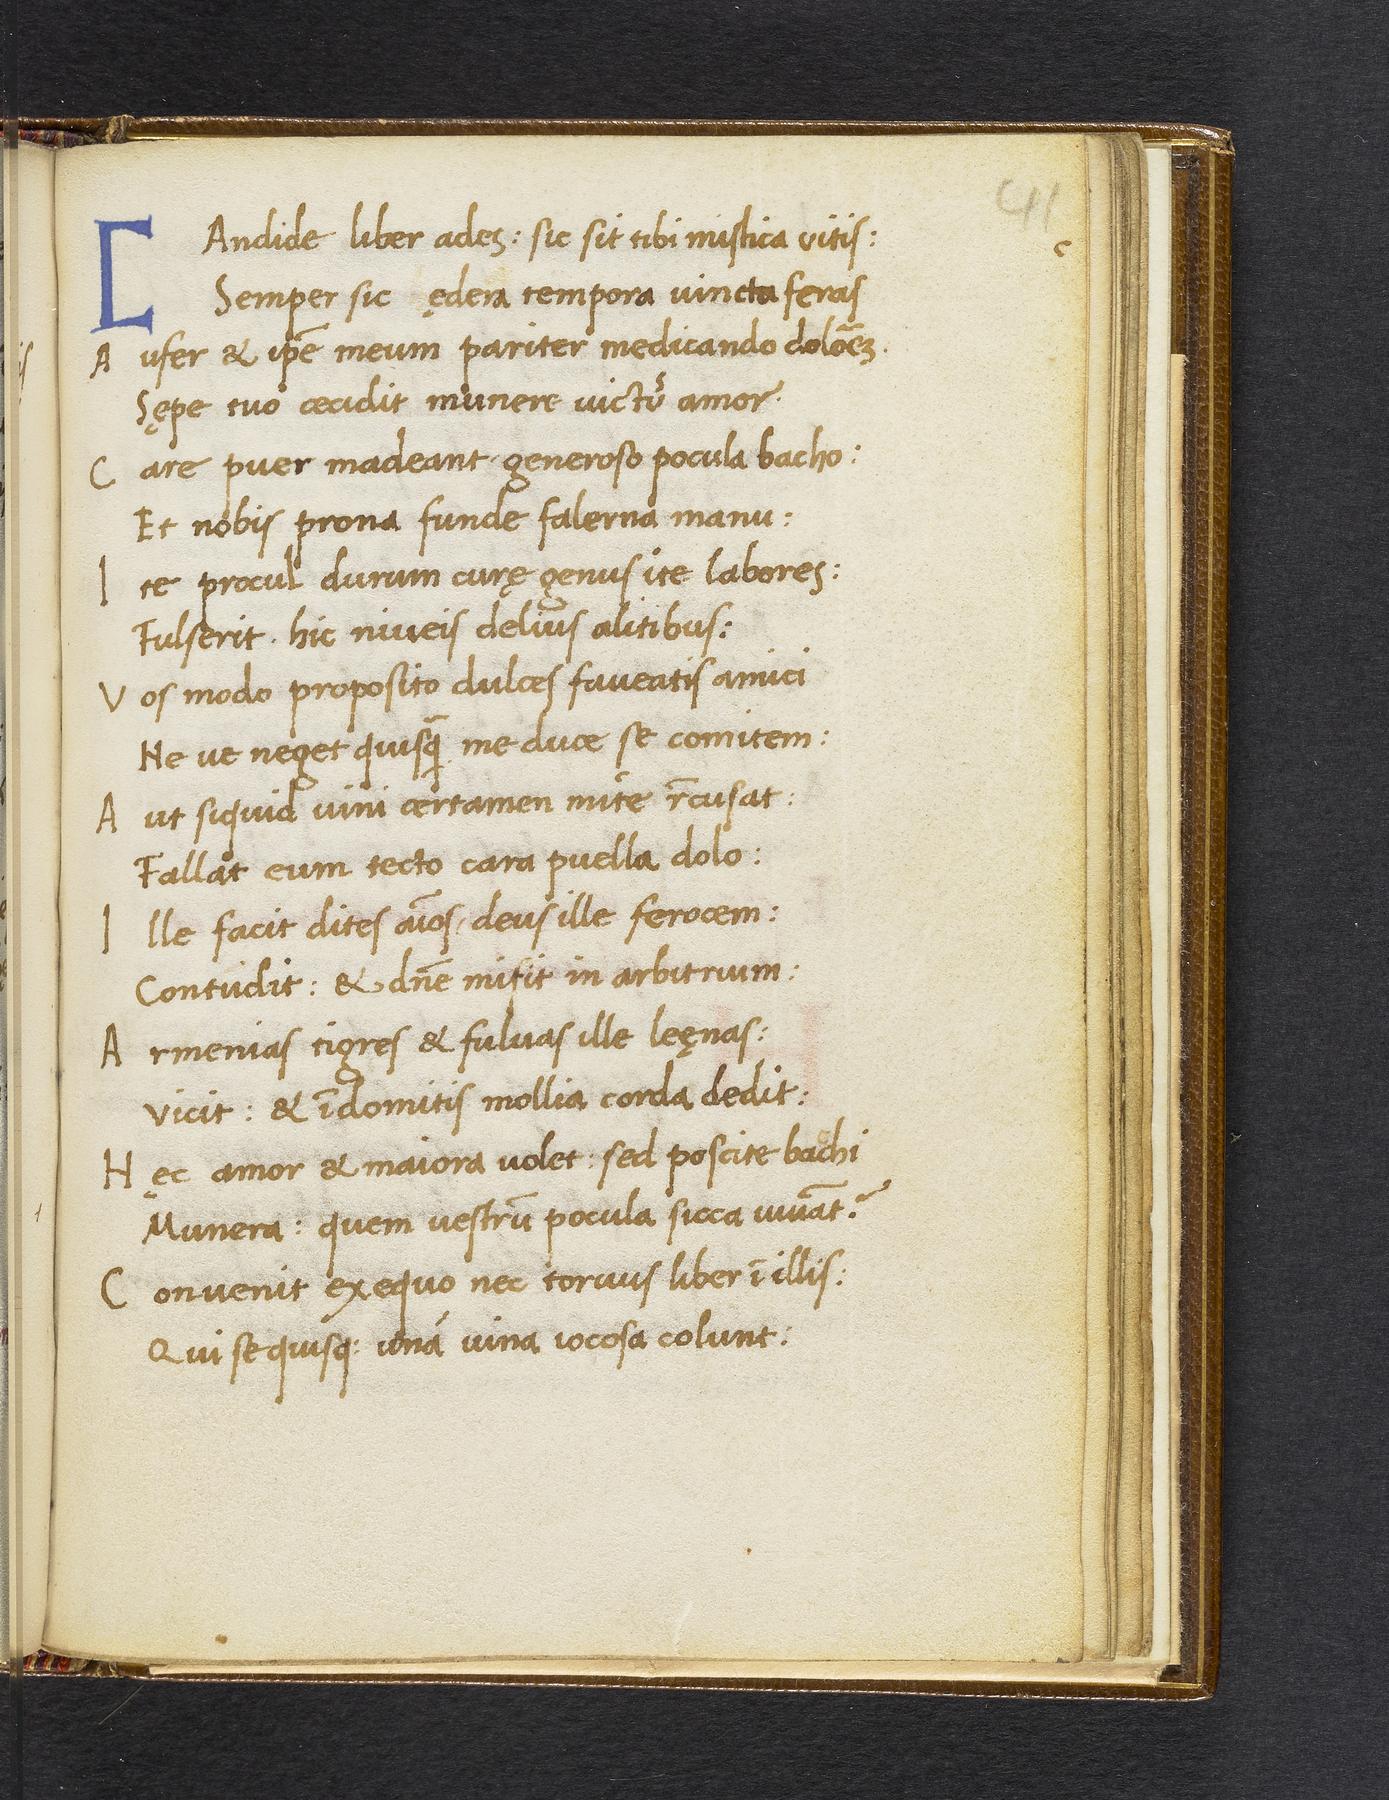 41
c
CAndide liber ades: sic sit tibi mistica vitis:
Semper sic ędera tempora uincta feras
Aufer & ip̄e meum pariter medicando dolōez.
Sępe tuo cecidit munere uictꝰ amor.
Care puer madeant generoso pocula bacho:
Et nobis prona funde falerna manu:
Ite procul durum curę genus ite labores:
Fulserit. hic niueis delius alitibus:
Vos modo proposito dulces faueatis amici
Ne ue neget quisq̄ me duce se comitem:
Aut siquid uini certamen mite r̄cusat:
Fallat eum tecto cara puella dolo:
Ille facit dites aīos, deus ille ferocem:
Contudit: & dn̄e misit in arbitrium:
Armenias tigres & fuluas ille leęnas:
Vicit: & īdomitis mollia corda dedit:
Hęc amor & maiora uolet: sed poscite bachi
Munera: quem uestrū pocula sicca iuuāt?
Conuenit exequo nec toruus liber ī illis:
Qui se quisq: unā uina iocosa colunt: